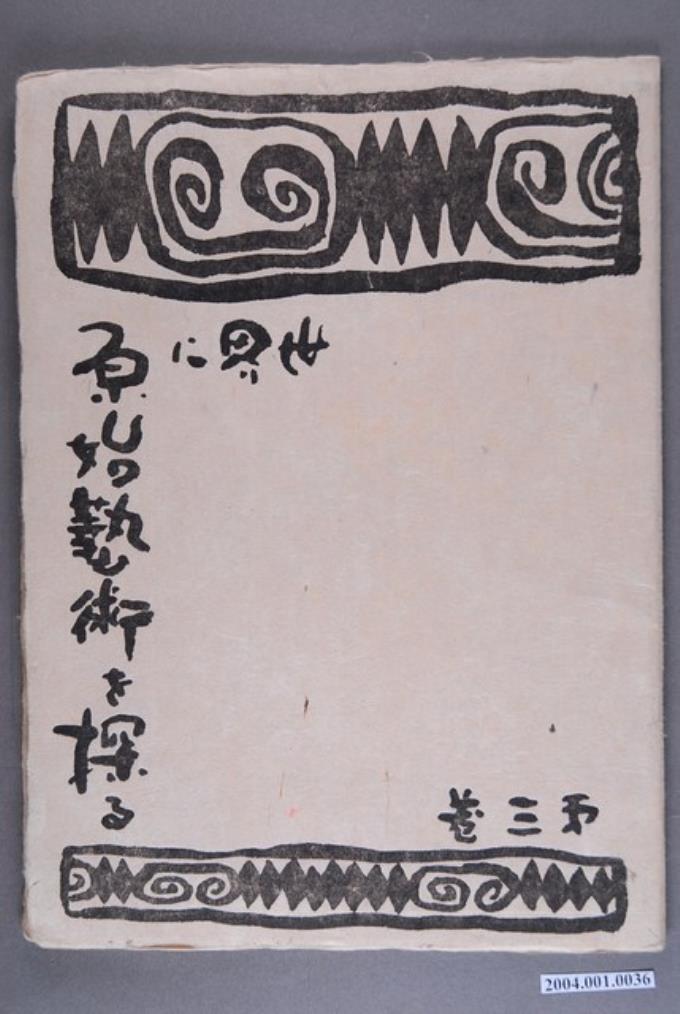 世界に
原始藝術を探る
第三卷
2004.001.0036